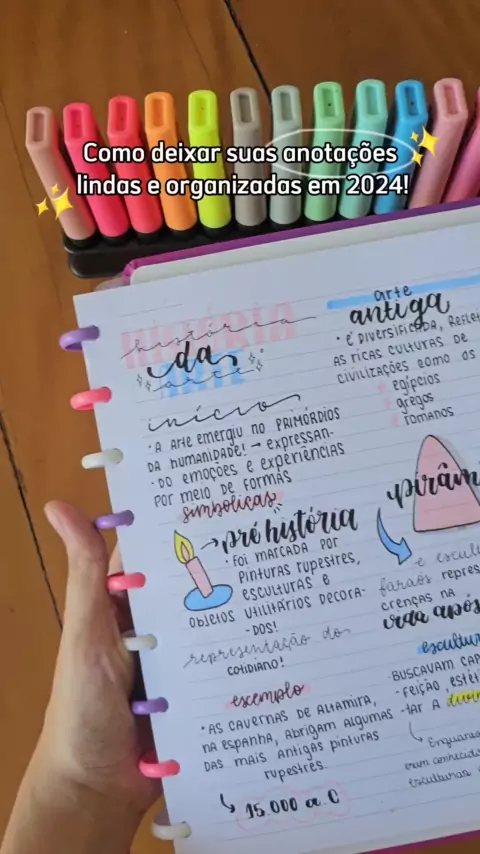 Como deixar suas anotações
lindas e organizadas em 2024!
HISTÓRIA
história
da
ARTE
arte
início
• A Arte emergiu no primórdios
da humanidade! → expressan-
-do emoções e experiências
por meio de formas
simbólicas
→ pré história
• Foi marcada por
pinturas rupestres,
esculturas e
objetos utilitários decora-
-dos!
representação do
cotidiano!
exemplo
• As cavernas de Altamira,
na Espanha, abrigam algumas
das mais antigas pinturas
rupestres.
↳ 15.000 a.C
arte
antiga
• é diversificada,
as ricas culturas de
civilizações como os
egípcios
gregos
romanos
faraós
crenças na
vida após
Buscavam
-feição
-tar a
↳ Enquanto